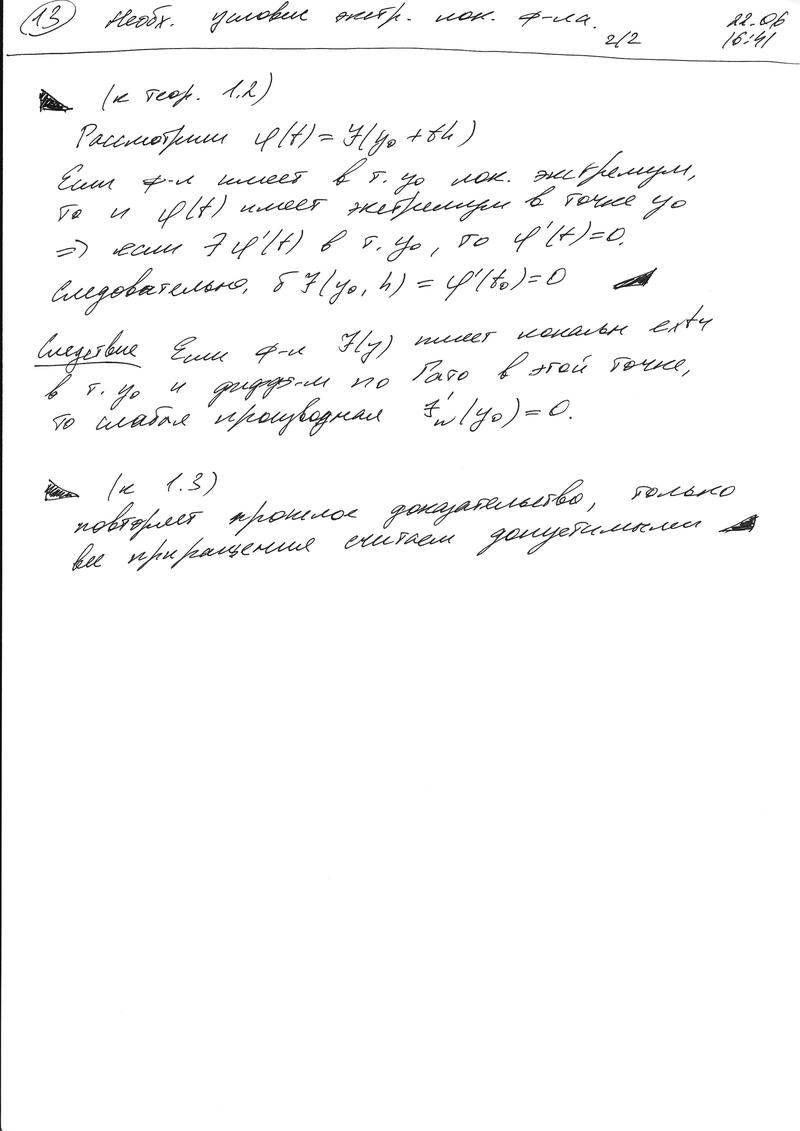 13 Необх. условие экстр. лок. ф-ла. 2/2 22.06 16:41
(к теор. 1.2)
Рассмотрим φ(t) = J(y₀ + th)
Если ф-л имеет в т. y₀ лок. экстремум,
то и φ(t) имеет экстремум в точке y₀
=> если ∃ φ'(t) в т. y₀, то φ'(t)=0.
Следовательно, δJ(y₀, h) = φ'(t₀)=0
Следствие Если ф-л J(y) имеет локальн extr
в т. y₀ и дифф-м по Гато в этой точке,
то слабая производная J'w(y₀)=0.
(к 1.3)
повторяет прошлое доказательство, только
все приращения считаем допустимыми